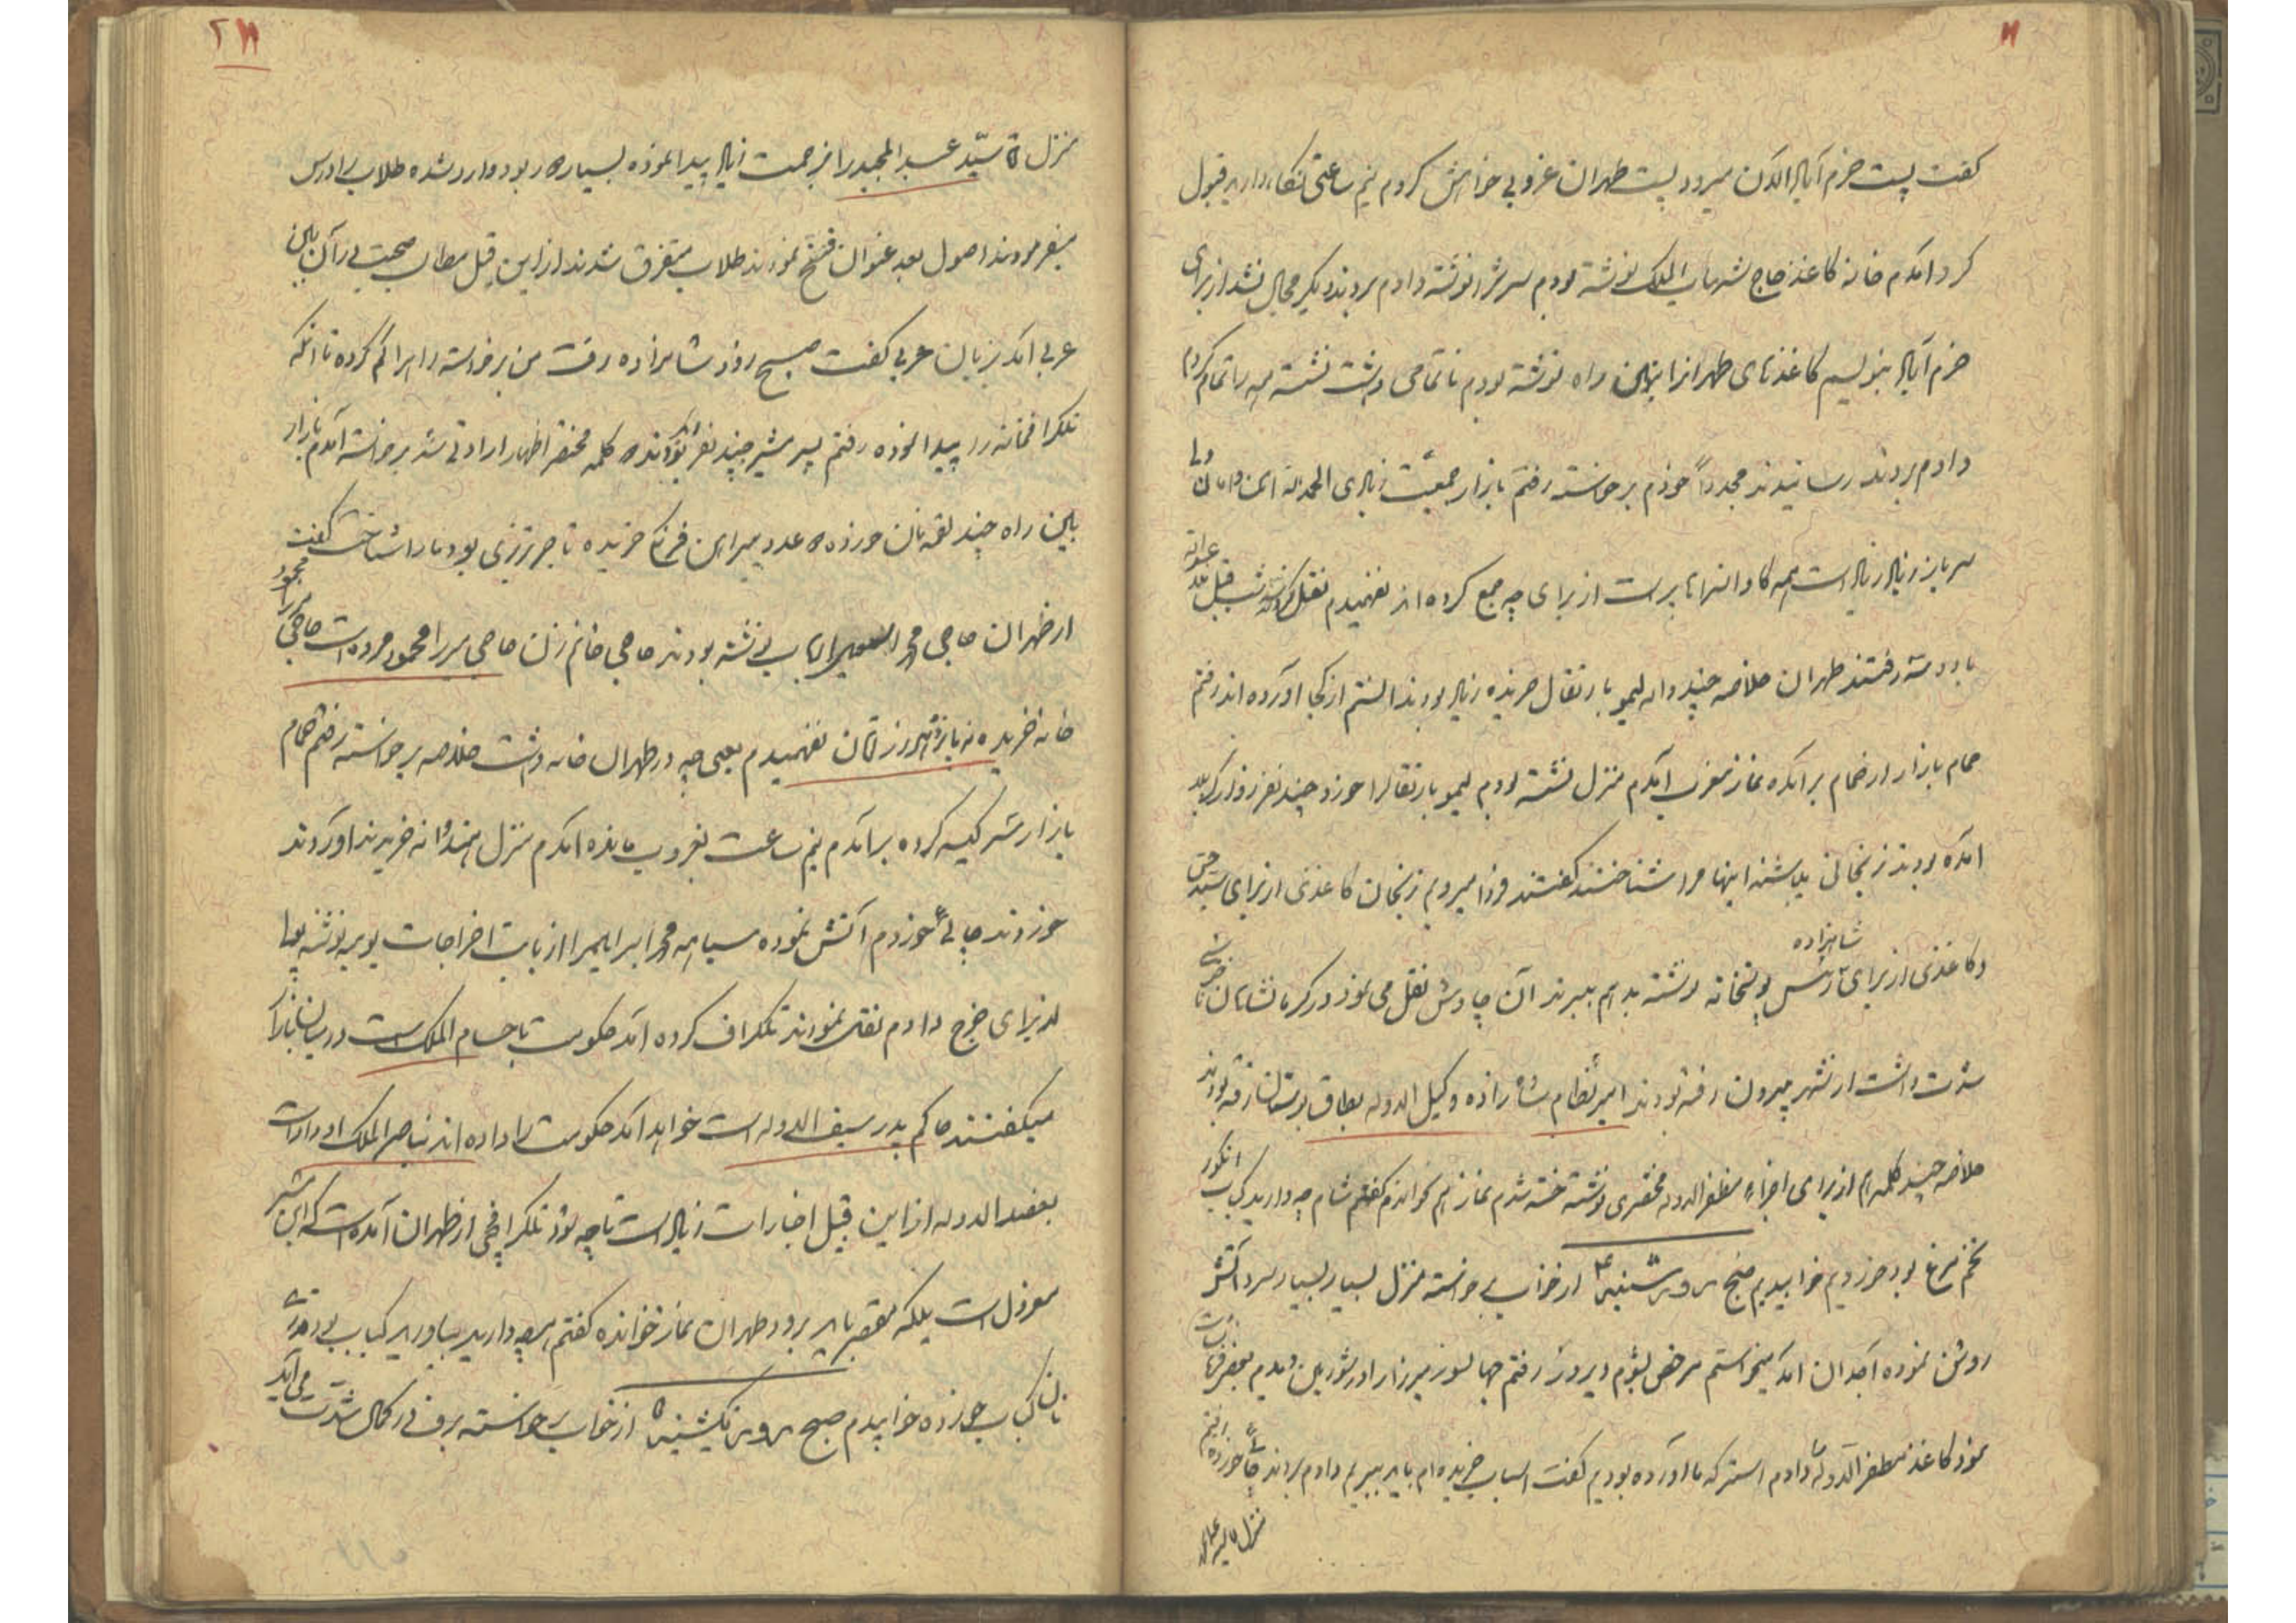 گفت پست خرم آباد الآن میرود پست طهران غروبی خواهش کردم نیم ساعتی نگاه دارید قبول
کرد آمدم خانه کاغذ حاج شهاب الملک نوشته بودم سرش را نوشته دادم بردند دیگر مجال نشد از برای
خرم آباد بنویسم کاغذهای طهران را بین راه نوشته بودم ناتمامی داشت نشسته همه را تمام کردم
دادم بردند رسانیدند مجدداً خودم برخواسته رفتم بازار جمعیت زیادی الحمدلله
سرباز زیاد زیاد است همه کاروانسراها پر است از برای چه جمع کرده اند نفهمیدم نقل کردند شب قبل
رفتند طهران خلاصه چند دانه لیمو با رتقال خریده زیاد بودند دانستم از کجا آورده اند رفتم
حمام بازار از حمام برآمده نماز مغرب آمدم منزل نشسته بودم لیمو با رتقال را خورد چند نفر زوار کربلا
آمده بودند زنجانی باشند اینها مرا شناختند گفتند فردا میرویم زنجان کاغذی از برای سید
و کاغذی از برای شاهزاده رئیس پستخانه نوشته بدهم ببرند آن چاوش نقل می نمود در کرمانشاهان ناخوشی
شدت داشت از شهر بیرون رفته بودند امیر نظام شاهزاده وکیل الدوله بطاق بستان رفته بودند
خلاصه چند کلمه هم از برای اجزاء مظفرالدوله مختصری نوشته خسته شدم نماز هم خواندم گفتم شام چه دارید کباب انگور
تخم مرغ بود خوردیم خوابیدیم صبح روز شنبه ۴ از خواب برخواسته منزل بسیار بسیار سرد آتش
روشن نموده آبدان آمد میخواستم مرخص بشوم دیروز رفتم جهانسوز میرزا را در شورین دیدم
نمود کاغذ مظفرالدوله را دادم استر که ما آورده بودیم گفت اسباب خریده ام باید ببریم دادم بردند چائی خورده رفتم
منزل
۲۱۱
منزل سید عبدالمجید را بزحمت زیاد پیدا نموده بسیار دور بود وارد شده طلاب را درس
میفرمودند اصول بعد عنوان فسخ نمودند طلاب متفرق شدند از این قبیل مطالب صحبت در آن بین
عربی آمد بزبان عربی گفت صبح روز شاهزاده رفت من برخواسته راه را گم کرده تا آنکه
تلگرافخانه را پیدا نموده رفتم پسر مشیر چند نفر بودند کلمه مختصر اظهار ارادتی شد برخواسته آمدم بازار
بین راه چند لقمه نان خورده عدد پیراهن فرنگ خریده تاجر تبریزی بود ما را شناخت گفت
از طهران حاجی محمد نوشته بودند حاجی خانم زن حاجی میرزا محمود مرده است حاجی میرزا محمود
خانه خریده نفهمیدم یعنی چه در طهران خانه داشت خلاصه برخواسته رفتم حمام
بازار سر کیسه کرده برآمدم نیم ساعت بغروب مانده آمدم منزل هندوانه خریدند آوردند
خوردند چائی خوردم آتش نموده سیاهه محمد ابراهیم را از بابت اخراجات یومیه نوشته
از برای خرج دادم نقل نمودند تلگراف کرده اند حکومت با حسام الملک است در میان بازار
میگفتند حاکم پدر سیف الدوله است خواهد آمد حکومت را داده اند بناصرالملک
بعضدالدوله از این قبیل اخبارات زیاد است تا چه بود تلگرافچی از طهران آمده است که این مشیر
معزول است بلکه مقصر باید برود طهران نماز خوانده گفتم هر چه دارید بیاورید کباب بود
نان کباب خورده خوابیدم صبح روز یکشنبه ۵ از خواب برخواسته برف در کمال شدت می آید